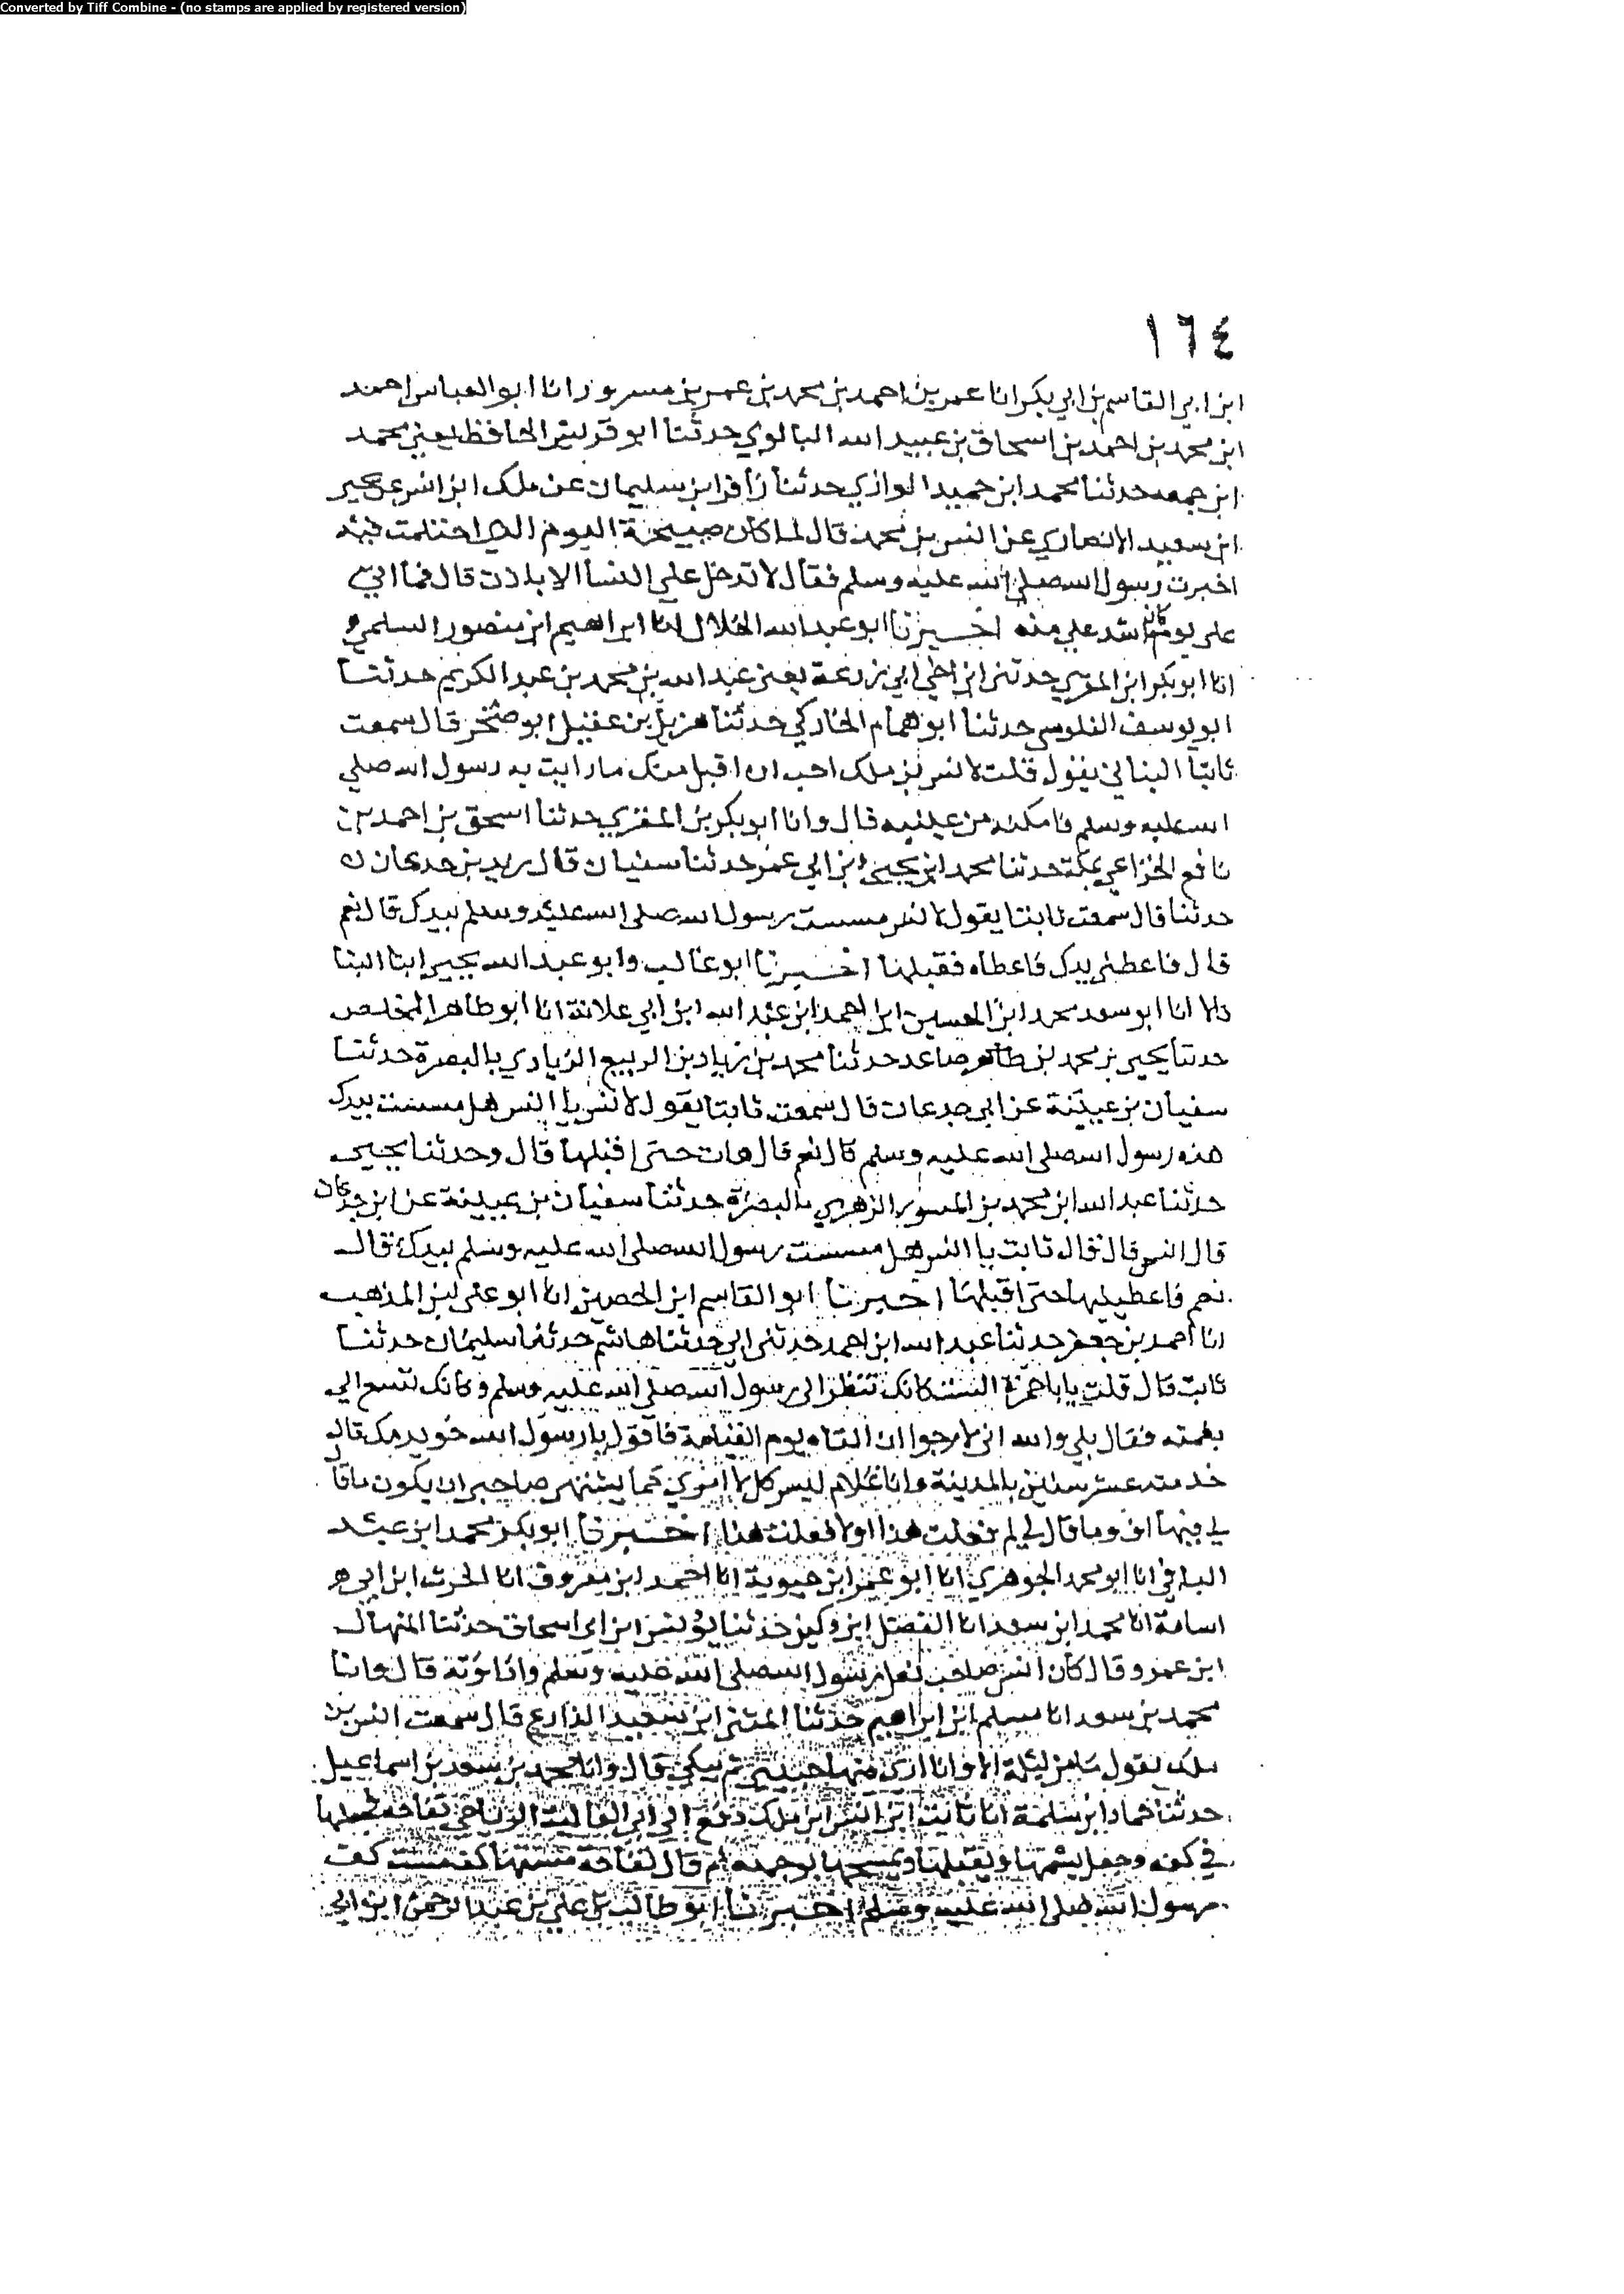 Converted by Tiff Combine - (no stamps are applied by registered version)
١٦٤
ابن ابي القاسم بن ابي بكر انا عمر بن احمد بن محمد بن عمر بن مسرور انا ابو العباس احمد
ابن محمد بن احمد بن اسحاق بن عبيد الله البالوي حدثنا ابو قريش الحافظ يعني محمد
ابن جمعه حدثنا محمد ابن حميد الرازي حدثنا زافر ابن سليمان عن ملك ابن انس عن يحيى
ابن سعيد الانصاري عن انس بن محمد قال لما كان صبيحة اليوم الذي احتلمت فيه
اخبرت رسول الله صلى الله عليه وسلم فقال لا تدخل على النسا الا باذن قال فما اتى
على يوم كان اشد علي منه اخبرنا ابو عبد الله الخلال انا ابراهيم ابن منصور السلمي
انا ابو بكر ابن المقري حدثني ابن اخي ابي زرعة يعني عبد الله بن محمد بن عبد الكريم حدثنا
ابو يوسف القلوسي حدثنا ابو همام الخاركي حدثنا هزيل بن عقيل ابو صخر قال سمعت
ثابتا البناني يقول قلت لانس بن ملك احب ان اقبل منك ما رايت به رسول الله صلى
الله عليه وسلم فامكنه من عينيه قال وانا ابو بكر بن المقري حدثنا اسحق بن احمد بن
نافع الخزاعي بمكة حدثنا محمد ابن يحيى ابن ابي عمر حدثنا سفيان قال بن جدعان
حدثنا قال سمعت ثابتا يقول لانس مسست رسول الله صلى الله عليه وسلم بيدك قال نعم
قال فاعطني يدك فاعطاه فقبلها اخبرنا ابو غالب وابو عبد الله يحيى ابنا البنا
قالا انا ابو سعد محمد ابن الحسين ابن احمد ابن عبد الله ابن ابي علانة انا ابو طاهر المخلص
حدثنا يحيى بن محمد بن صاعد حدثنا محمد بن زياد بن الربيع الزيادي بالبصرة حدثنا
سفيان بن عيينة عن ابن جدعان قال سمعت ثابتا يقول لانس يا انس هل مسست بيدك
هذه رسول الله صلى الله عليه وسلم قال نعم قال هات حتى اقبلها قال وحدثنا يحيى
حدثنا عبد الله ابن محمد بن المسور الزهري بالبصرة حدثنا سفيان بن عيينة عن ابن جدعان
قال انس قال قال ثابت يا انس هل مسست رسول الله صلى الله عليه وسلم بيدك قال
نعم فاعطينها حتى اقبلها اخبرنا ابو القاسم ابن الحصين انا ابو علي بن المذهب
انا احمد بن جعفر حدثنا عبد الله ابن احمد حدثني ابي حدثنا هاشم حدثنا سليمان حدثنا
ثابت قال قلت يابا حمزة الست كانك تنظر الى رسول الله صلى الله عليه وسلم وكانك تسمع الى
نغمته فقال بلى والله اني لارجوا ان القاه يوم القيامة فاقول يا رسول الله خويدمك قال
خدمته عشر سنين بالمدينة وانا غلام ليس كل امري كما يشتهي صاحبي ان يكون ما قال
لي فيها اف وما قال لي لم فعلت هذا اولا فعلت هذا اخبرنا ابو بكر محمد ابن عبد
الباقي انا ابو محمد الجوهري انا ابو عمر ابن حيوية انا احمد ابن معروف انا الحرث ابن ابي
اسامة انا محمد ابن سعد انا الفضل ابن دكين حدثنا يونس ابن ابي اسحاق حدثنا المنهال
ابن عمرو قال كان انس صاحب نعل رسول الله صلى الله عليه وسلم قال وانا
محمد بن سعد انا مسلم ابن ابراهيم حدثنا المثنى ابن سعيد الذارع قال سمعت انس بن
ملك يقول ما من ليلة الا وانا ارى فيها حبيبي ثم يبكي قال وانا محمد بن سعد بن اسماعيل
حدثنا حماد ابن سلمة انا ثابت ان انس ابن ملك دفع الى ابي العالية الرياحي تفاحة فجعلها
في كفه وجعل يشمها ويقبلها ويمسحها بوجهه ثم قال تفاحة مستها كف مست كف
رسول الله صلى الله عليه وسلم اخبرنا ابو طالب علي بن عبد الرحمن ابن ابي